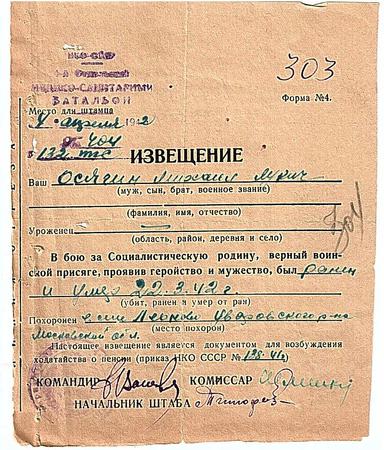 НКО-СССР
303
МЕДИКО-САНИТАРНЫЙ
БАТАЛЬОН
Форма №4.
Место для штампа
апреля 1942
№ 404
ИЗВЕЩЕНИЕ
Ваш Михаил
(муж, сын, брат, военное звание)
(фамилия, имя, отчество)
Уроженец
(область, район, деревня и село)
В бою за Социалистическую родину, верный воин-
ской присяге, проявив геройство и мужество, был ранен
и умер 22.3.42 г.
(убит, ранен и умер от ран)
Похоронен Уваровского р-на
(место похорон)
Московской обл.
Настоящее извещение является документом для возбуждения
ходатайства о пенсии (приказ НКО СССР №
КОМАНДИР КОМИССАР
НАЧАЛЬНИК ШТАБА